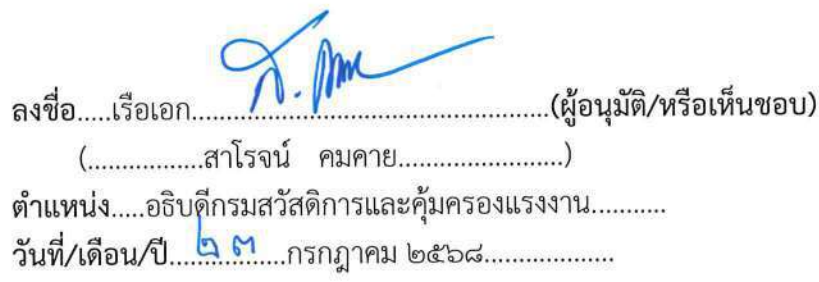 ลงชื่อ.....เรือเอก....................................................(ผู้อนุมัติ/หรือเห็นชอบ)
(.................สาโรจน์ คมคาย........................)
ตำแหน่ง.....อธิบดีกรมสวัสดิการและคุ้มครองแรงงาน...........
วันที่/เดือน/ปี.....๒๓.....กรกฎาคม ๒๕๖๘...................